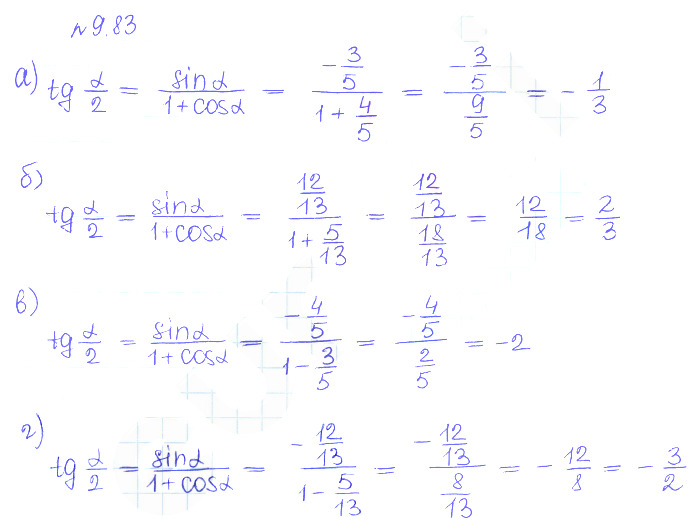 № 9.83
а) tg α/2 = sinα/(1+cosα) = (-3/5)/(1+4/5) = (-3/5)/(9/5) = -1/3
б) tg α/2 = sinα/(1+cosα) = (12/13)/(1+5/13) = (12/13)/(18/13) = 12/18 = 2/3
в) tg α/2 = sinα/(1+cosα) = (-4/5)/(1-3/5) = (-4/5)/(2/5) = -2
г) tg α/2 = sinα/(1+cosα) = (-12/13)/(1-5/13) = (-12/13)/(8/13) = -12/8 = -3/2